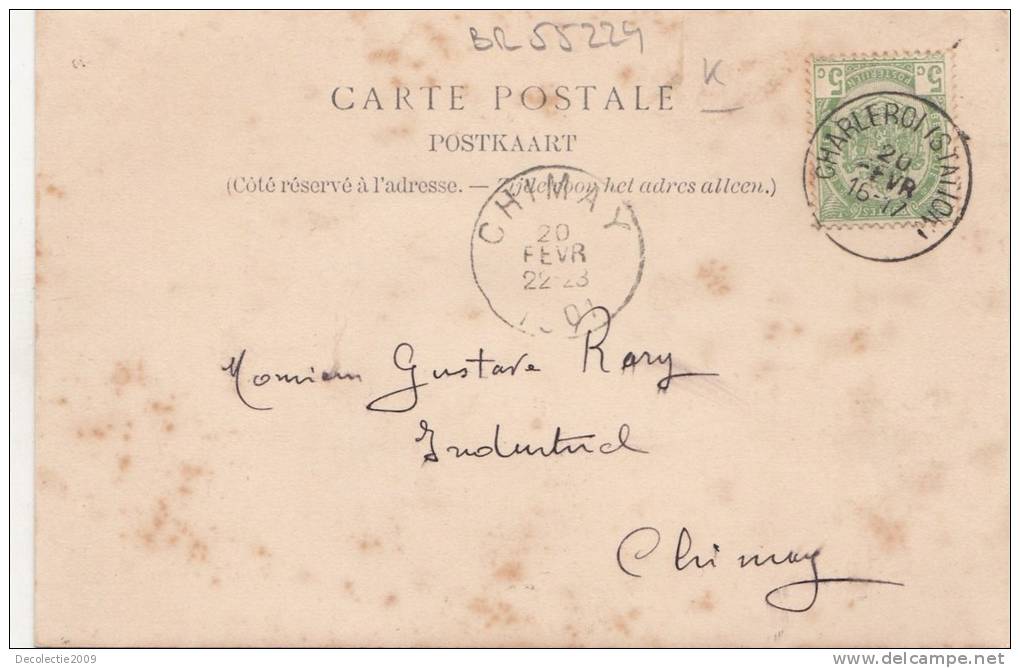 BR 55229
K
CARTE POSTALE
POSTKAART
(Côté réservé à l'adresse. — Zijde voor het adres alleen.)
5 c 5 c
POSTERIJEN
CHARLEROI (STATION)
20
FEVR
16-17
CHIMAY
20
FEVR
22-23
Monsieur Gustave Rary
Industriel
Chimay
Decolectie2009
www.delcampe.net